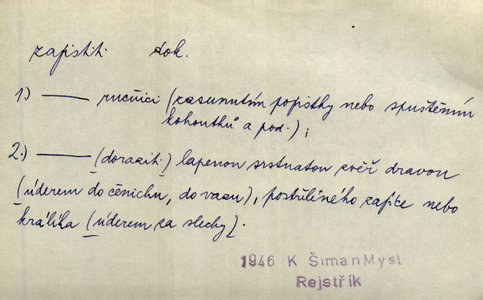 zajistiti dok.
1.) ——— ručnici (zasunutím pojistky nebo spuštěním
kohoutků a pod.);
2.) ——— (doraziti) lapenou srstnatou zvěř dravou
(úderem do čenichu, do vazu), postřeleného zajíce nebo
králíka (úderem za slechy).
1946 K Šiman Mysl
Rejstřík